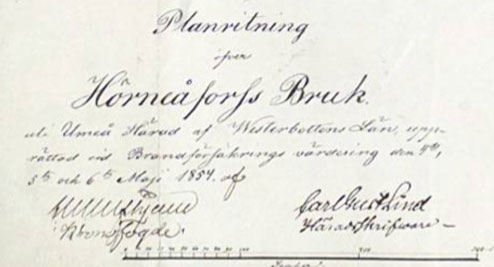 Planritning
öfver
Hörneåforss Bruk.
uti Umeå Härad af Westerbottens Län, upp-
rättad vid Brandförsäkrings värdering den 4de,
5te och 6te Maji 1857. af
Carl Gust Lind
Kronofogde. Häradskrifvare